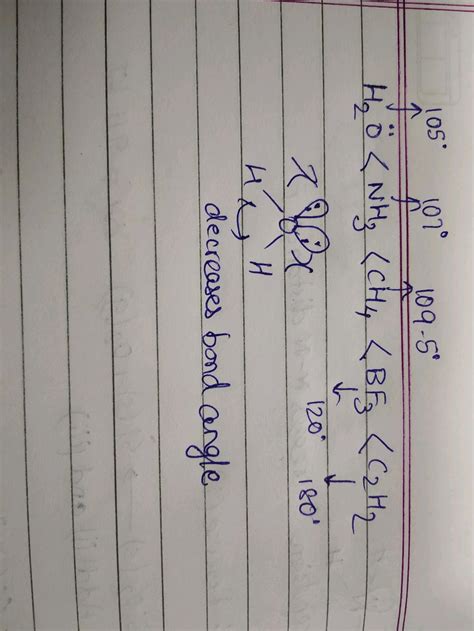 105° 107° 109.5°
H₂Ö < NH₃ < CH₄ < BF₃ < C₂H₂
120° 180°
O
H H
decreases bond angle